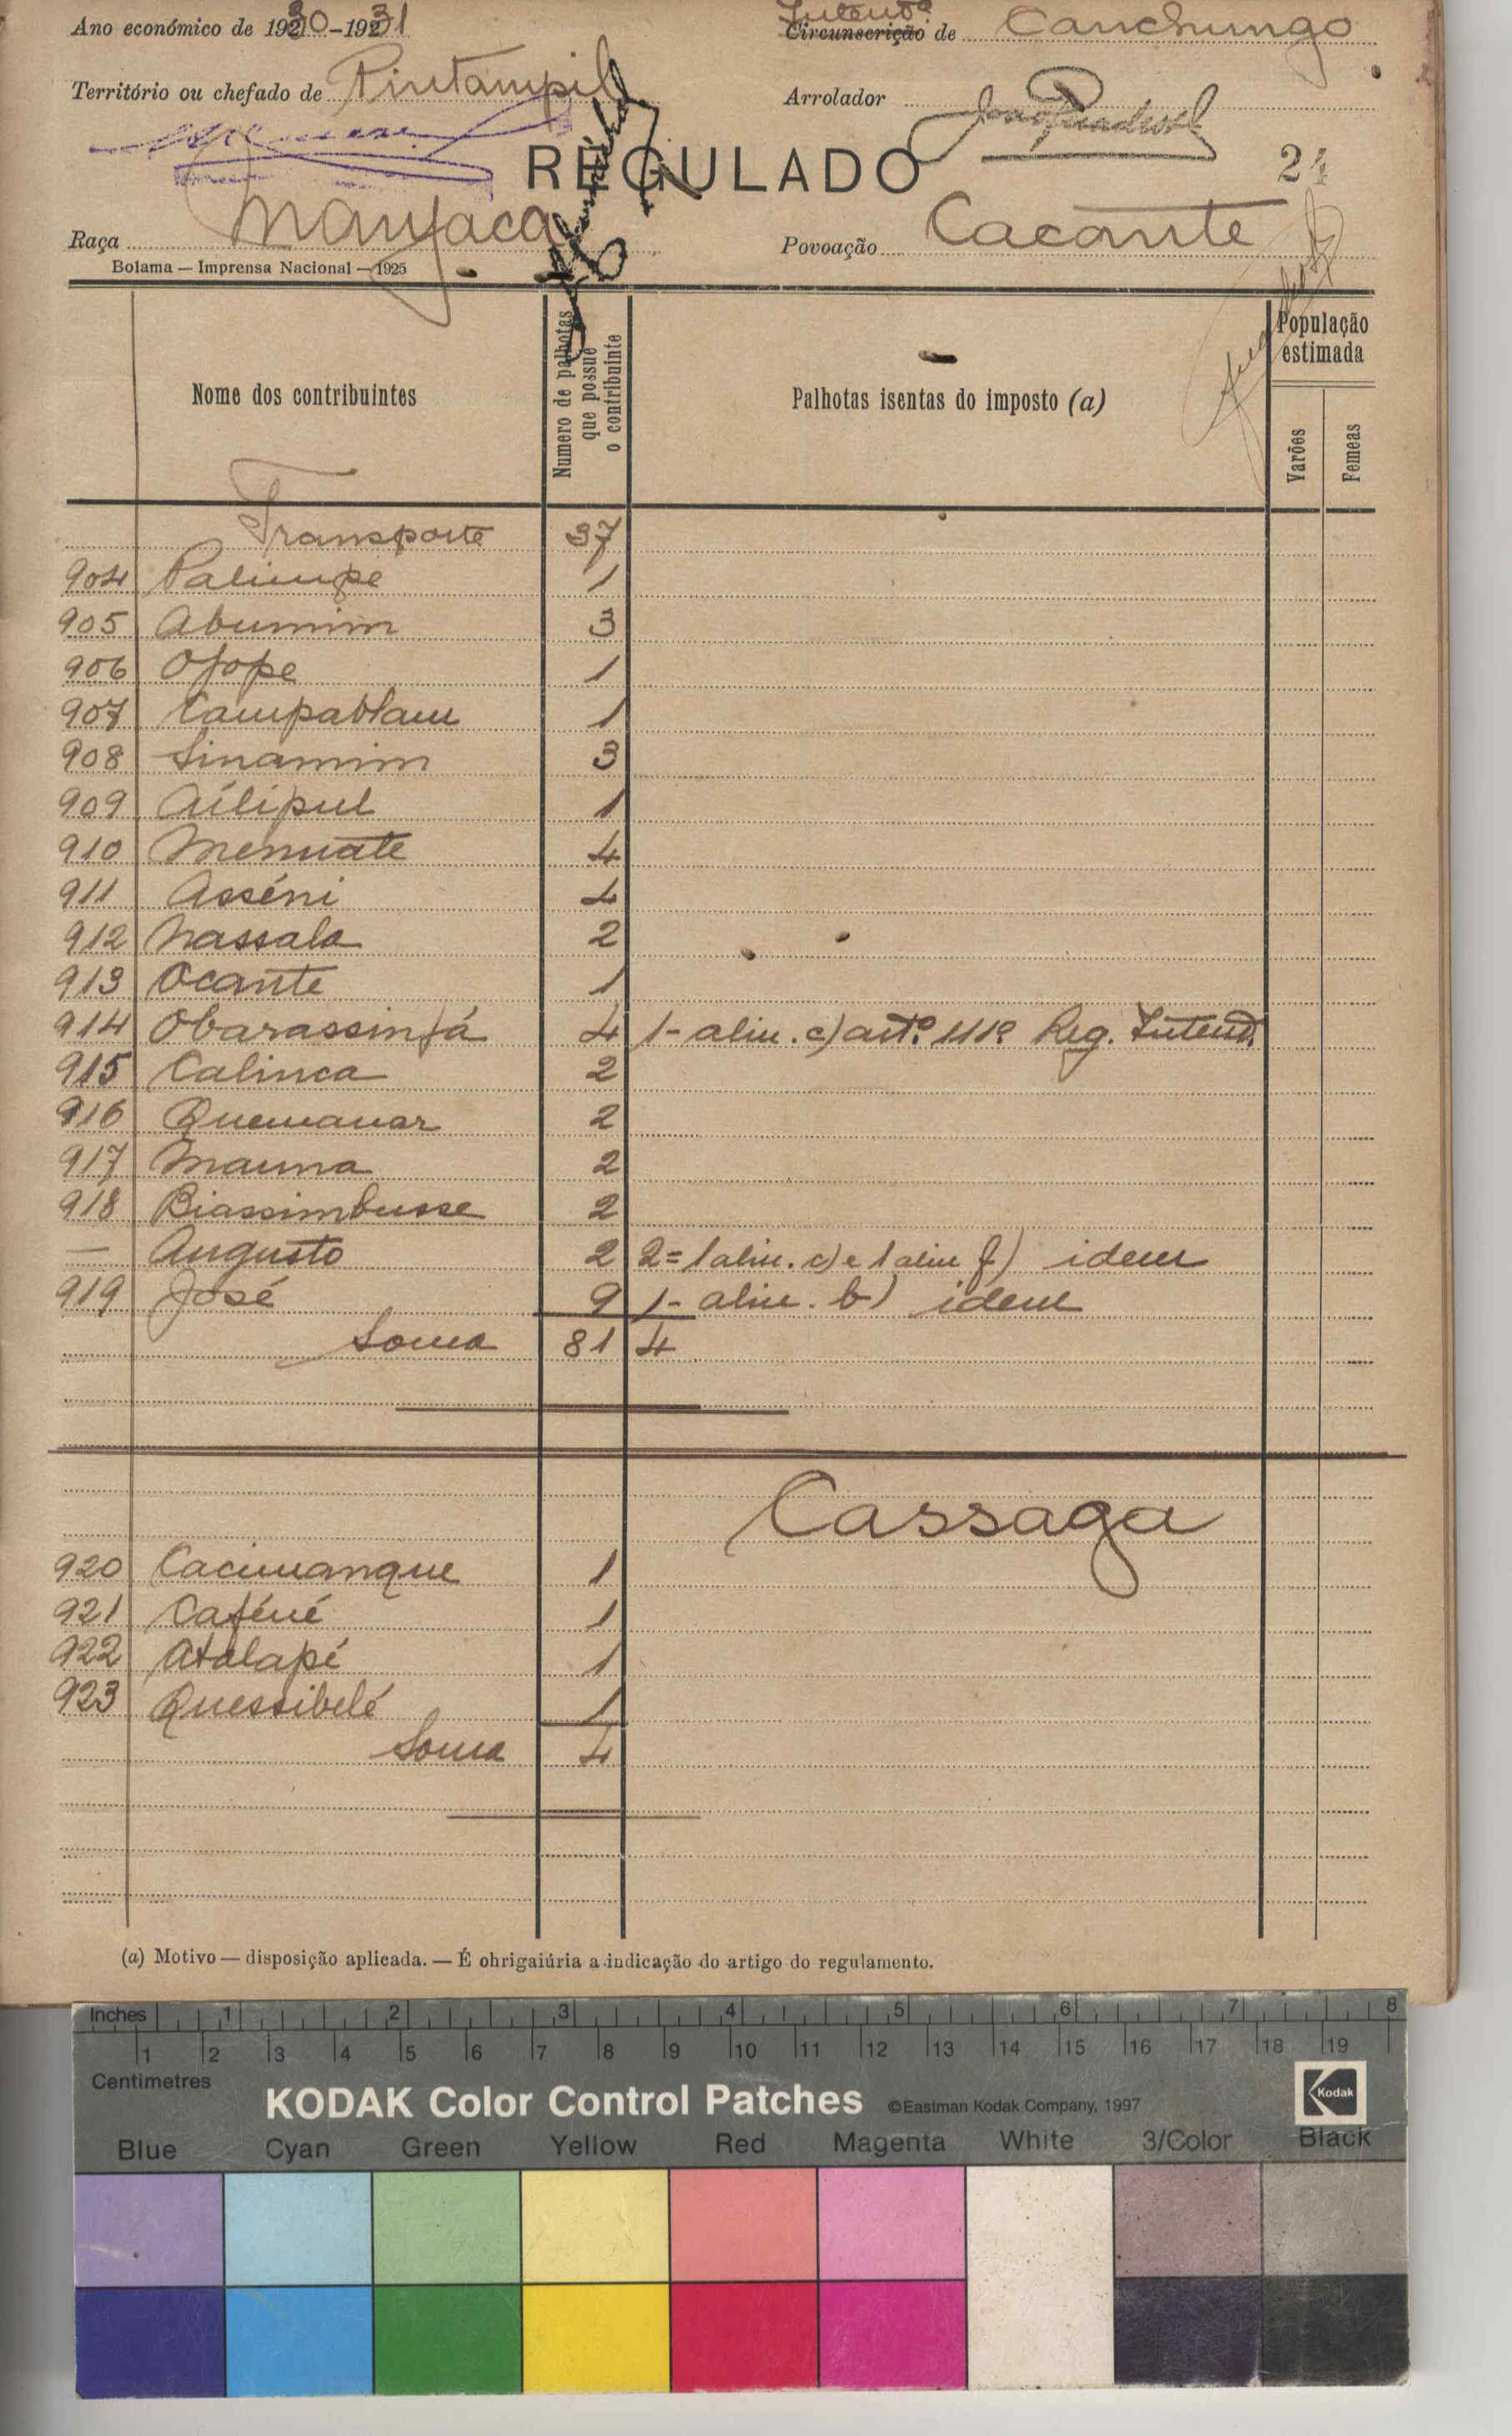 Ano económico de 1930-1931
Intendª
Circunscrição de Canchungo
Território ou chefado de Pintampil
Arrolador
REGULADO
24
Raça Manjaca
Povoação Cacante
Bolama — Imprensa Nacional — 1925
Nome dos contribuintes
Numero de palhotas que possue o contribuinte
Palhotas isentas do imposto (a)
População estimada
Varões
Femeas
Transporte 37
904 Palimpe 1
905 Abumim 3
906 Ofope 1
907 Campablam 1
908 Sinamim 3
909 Aílipul 1
910 Menuate 4
911 Asséni 4
912 Nassala 2
913 Ocante 1
914 Obarassinjá 4 1- alin. c) artº 111º Reg. Intend.
915 Calinca 2
916 Quemanar 2
917 Mauna 2
918 Biassimbusse 2
— Augusto 2 2=1 alin. c) e 1 alin f) idem
919 José 9 1- alin. b) idem
Soma 81 4
Cassaga
920 Cacimanque 1
921 Caféné 1
922 Atalapé 1
923 Quessibelé 1
Soma 4
(a) Motivo — disposição aplicada. — É ohrigaiúria a indicação do artigo do regulamento.
Inches 1 2 3 4 5 6 7 8
1 2 3 4 5 6 7 8 9 10 11 12 13 14 15 16 17 18 19
Centimetres
KODAK Color Control Patches ©Eastman Kodak Company, 1997 Kodak
Blue Cyan Green Yellow Red Magenta White 3/Color Black